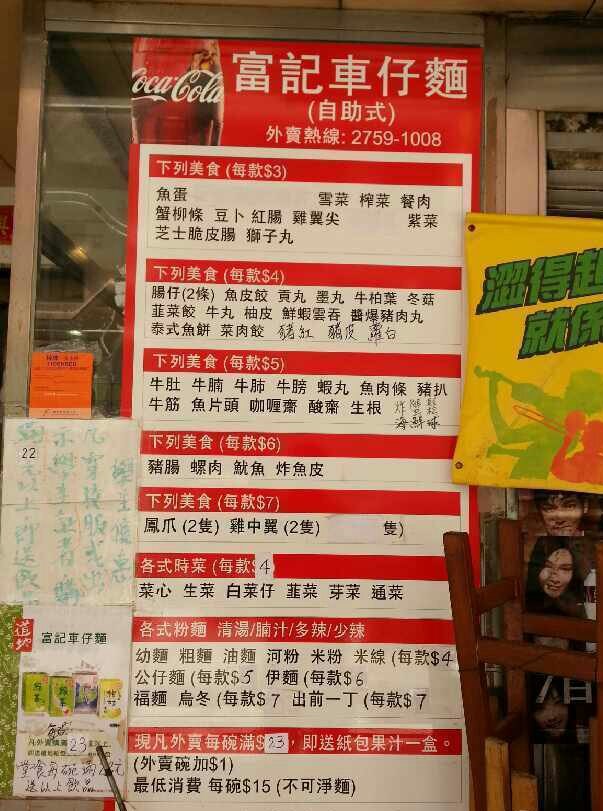 Coca-Cola
富記車仔麵
(自助式)
外賣熱線: 2759-1008
下列美食 (每款$3)
魚蛋 雪菜 榨菜 餐肉
蟹柳條 豆卜 紅腸 雞翼尖 紫菜
芝士脆皮腸 獅子丸
下列美食 (每款$4)
腸仔(2條) 魚皮餃 貢丸 墨丸 牛柏葉 冬菇
韮菜餃 牛丸 柚皮 鮮蝦雲吞 醬爆豬肉丸
泰式魚餅 菜肉餃 豬紅 豬皮 蘿白
下列美食 (每款$5)
牛肚 牛腩 牛肺 牛膀 蝦丸 魚肉條 豬扒
牛筋 魚片頭 咖喱齋 酸齋 生根
下列美食 (每款$6)
豬腸 螺肉 魷魚 炸魚皮
下列美食 (每款$7)
鳳爪 (2隻) 雞中翼 (2隻) 隻)
各式時菜 (每款$4
菜心 生菜 白菜仔 韮菜 芽菜 通菜
各式粉麵 清湯/腩汁/多辣/少辣
幼麵 粗麵 油麵 河粉 米粉 米線 (每款$4
公仔麵 (每款$5 伊麵 (每款$6
福麵 烏冬 (每款$7 出前一丁 (每款$7
現凡外賣每碗滿$23, 即送紙包果汁一盒。
(外賣碗加$1)
最低消費 每碗$15 (不可淨麵)
澀得起
就係
LICENSED
22
道地
富記車仔麵
凡外賣購滿23